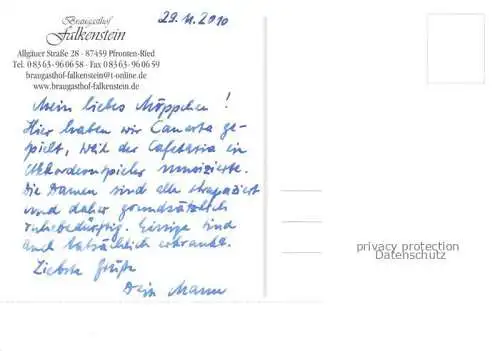 29.11.2010
Braugasthof
Falkenstein
Allgäuer Straße 28 - 87459 Pfronten-Ried
Tel. 0 83 63-96 06 58 - Fax 0 83 63-96 06 59
braugasthof-falkenstein@t-online.de
www.braugasthof-falkenstein.de
Mein liebes Möppchen!
Hier haben wir Canasta ge-
spielt, weil der Cafeteria ein
Akkordeonspieler musizierte.
Die Damen sind alle strapaziert
und daher grundsätzlich
ruhebedürftig. Einige sind
auch tatsächlich erkrankt.
Liebste Grüße
Dein Mann
privacy protection
Datenschutz